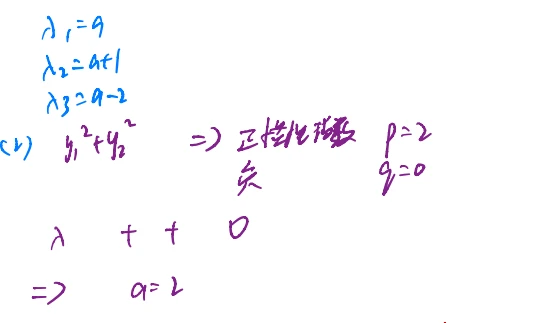 λ₁=a
λ₂=a+1
λ₃=a-2
(2) y₁²+y₂² => 正惯性指数 p=2
负 q=0
λ + + 0
=> a=2